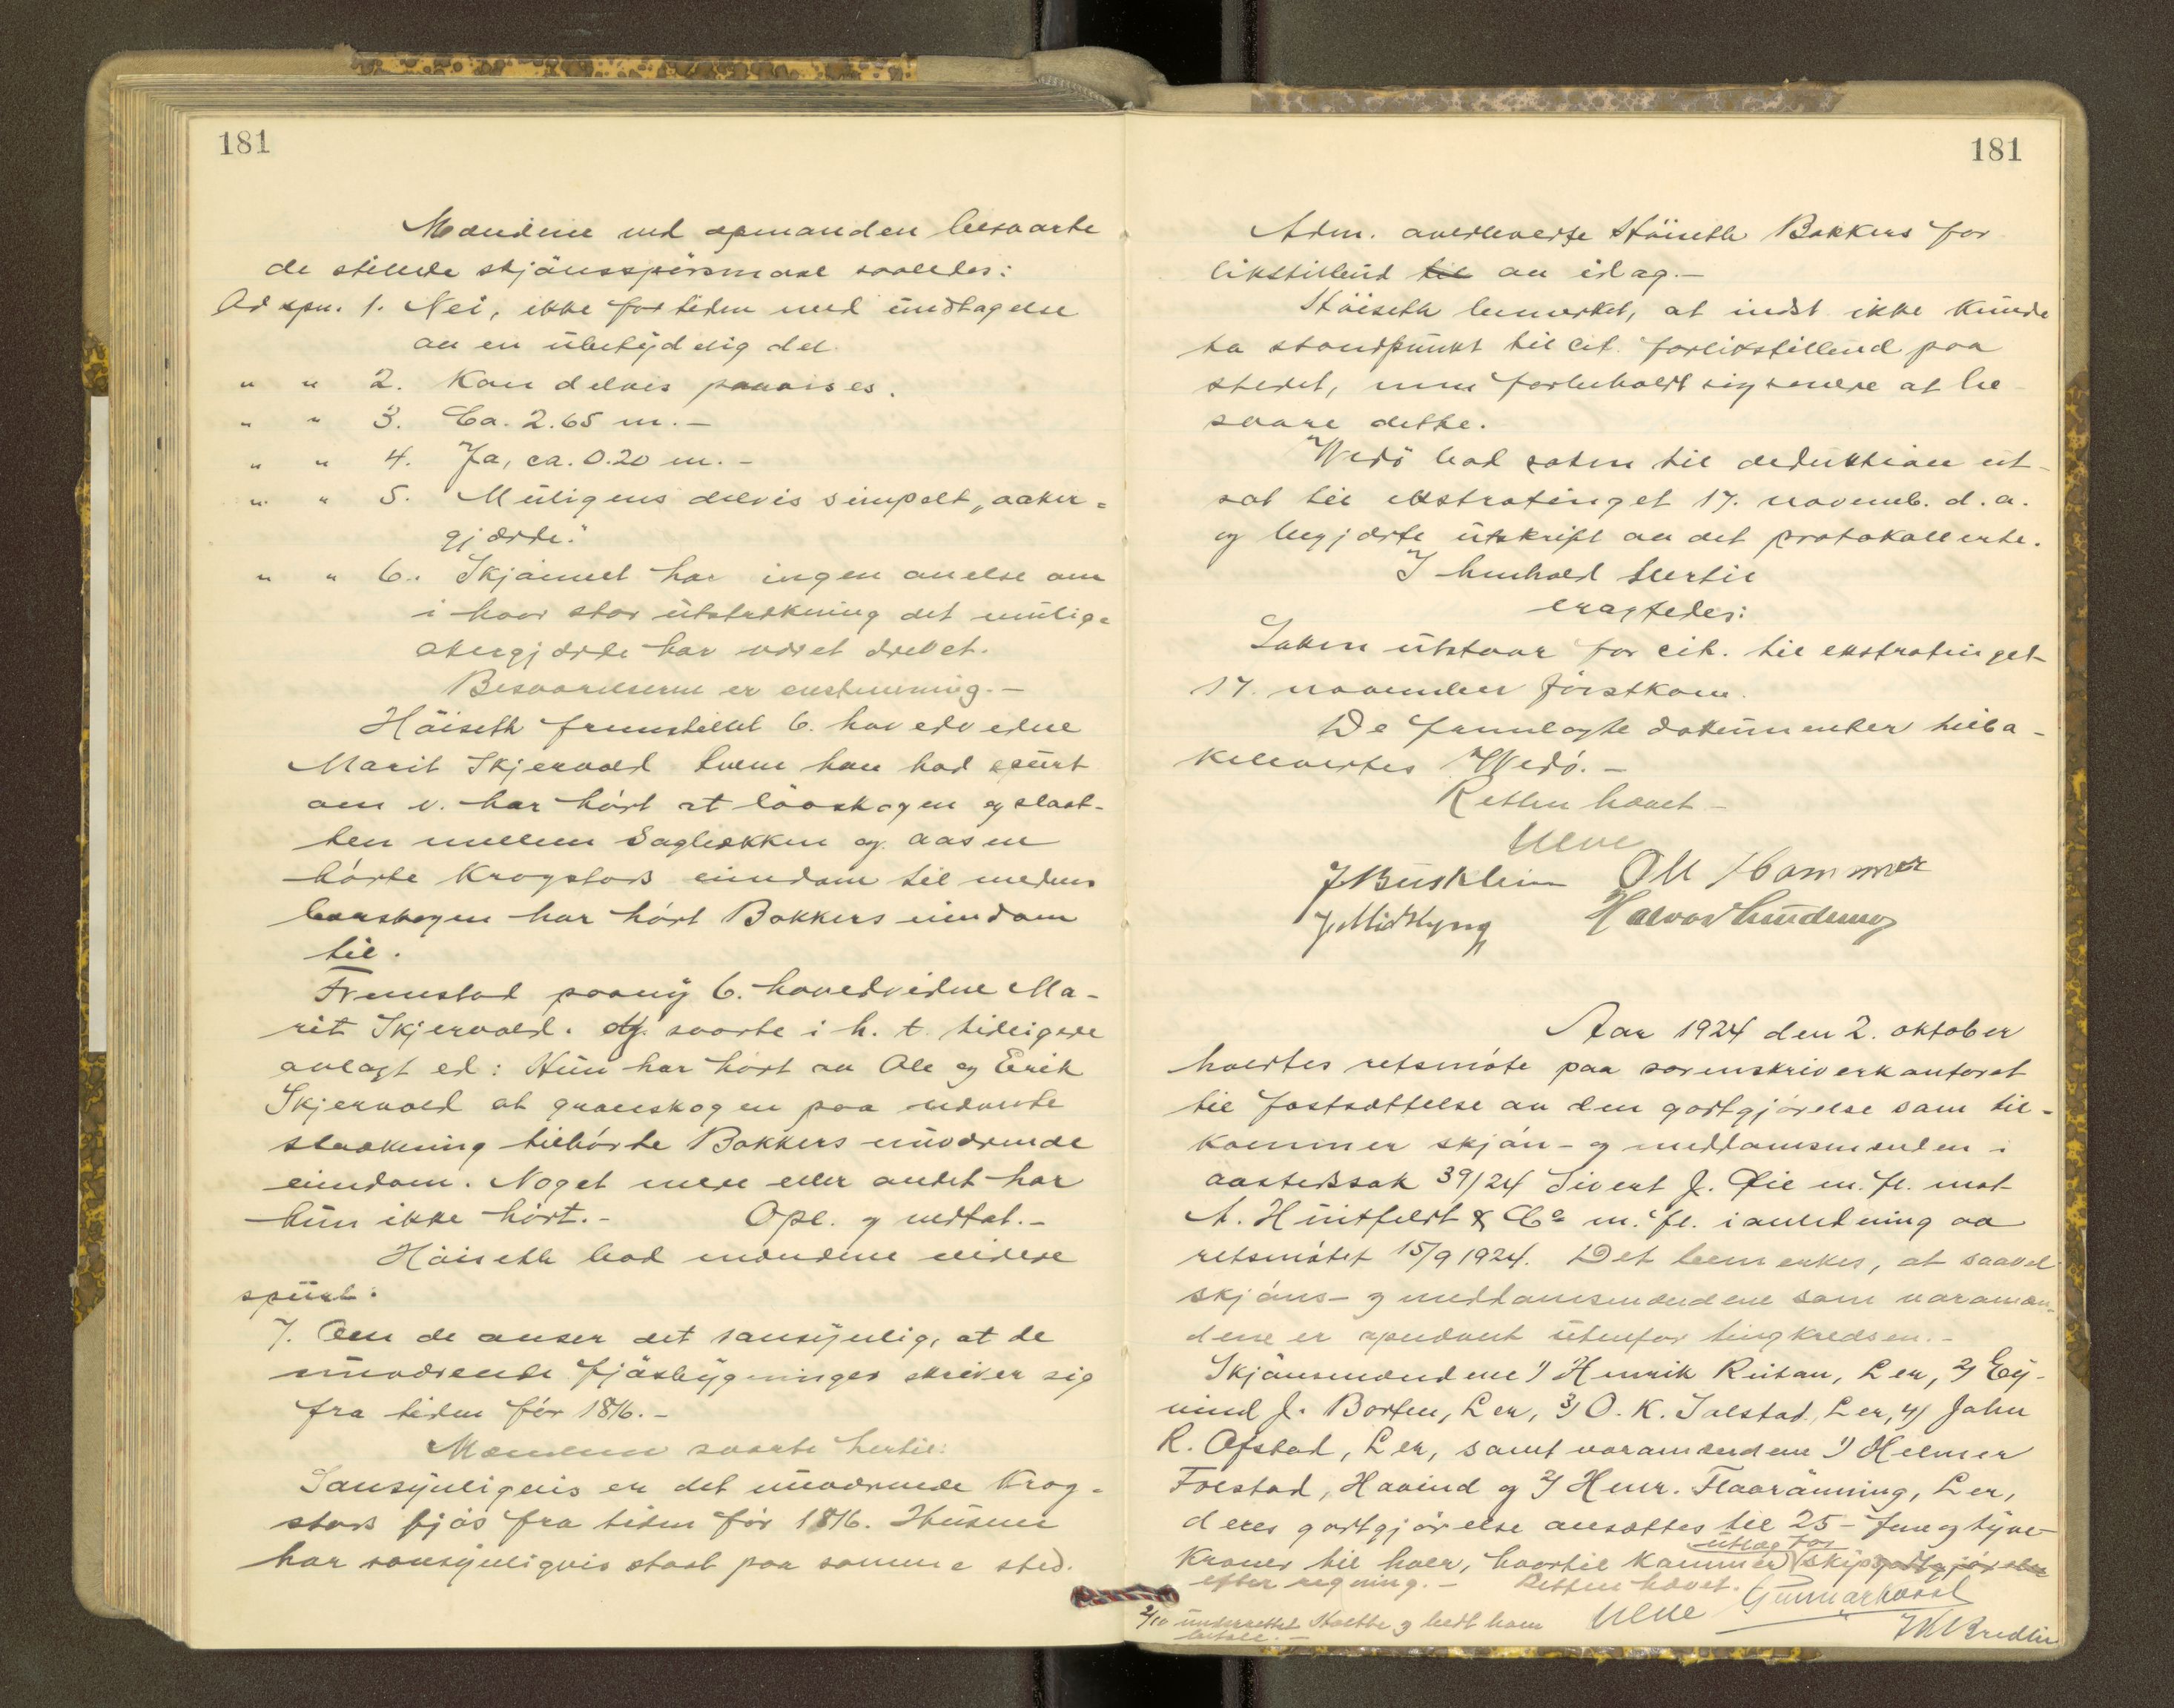 181
Mændene med opmanden besvarte
de stillede skjönsspörsmaal saaledes:
Ad spm. 1. Nei, ikke for tiden med undtagelse
av en ubetydelig del.
" " 2. Kan delvis paavises.
" " 3. Ca. 2.65 m. -
" " 4. Ja, ca. 0.20 m. -
" " 5. Muligens delvis simpelt "aaker-
gjærde."
" " 6. Skjönnet har ingen anelse om
i hvor stor utstrækning det mulige
akergjærde har været drevet.
Besvarelserne er enstemmig. -
Höiseth fremstillet 6. hovedvidne
Marit Skjervold hvem han bad spurt
om v. har hört at lövskogen og slaat-
ten mellem Sagbækken og aasen
hörte Krogstads eiendom til medens
barskogen har hört Bakkers eiendom
til.
Fremstod paany 6. hovedvidne Ma-
rit Skjervold. og svarte i h. t. tidligere
avlagt ed: Hun har hört av Ole og Erik
Skjervold at granskogen paa nævnte
strækning tilhörte Bakkers nuværende
eiendom. Noget mere eller andet har
hun ikke hört. - Opl. og vedtat. -
Höiseth bad mændene videre
spurt:
7. Om de anser det sansynlig, at de
nuværende fjösbygninger skriver sig
fra tiden för 1816. -
Mændene svarte hertil:
Sansynligvis er det nuværende Krog-
stads fjös fra tiden för 1816. Husene
har sansynligvis staat paa samme sted.
181
Adm. overleverte Höiseth Bakkers for-
likstilbud til av idag. -
Höiseth bemerket, at indst ikke kunde
ta standpunkt til cit. forlikstilbud paa
stedet, men forbeholdt sig senere at be-
svare dette.
Wedö bad saken til deduktion ut-
sat til ekstratinget 17. novemb. d. a.
og begjærte utskrift av det protokollerte.
I henhold hertil
eragtedes:
Saken utstaar for cit. til ekstratinget
17. november förstkom.
De fremlagte dokumenter tilba-
kelevertes Wedö. -
Retten hævet -
Ulve
J Buseklein Oll Hammer
J. Midtlyng Halvor Lindemo
Aar 1924 den 2. oktober
holdtes retsmöte paa sorenskriverkontoret
til fastsættelse av den godtgjörelse som til-
kommer skjön- og meddomsmænden i
aastedssak 39/24 Sivert J. Øie m. fl. mot
A. Huitfeldt & Co m. fl. i anledning av
retsmötet 15/9 1924. Det bemerkes, at saavel
skjöns- og meddomsmændene som varamæn-
dene er opnævnt utenfor tingkredsen. -
Skjönsmændene 1) Henrik Ruitan, Ler, 2) Ey-
vind J. Borten, Ler, 3) O. K. Solstad, Ler, 4) John
R. Ofstad, Ler, samt varamændene 1) Helmer
Folstad, Hovind og 2) Henr. Flaarönning, Ler,
deres godtgjörelse ansættes til 25 - fem og tyve -
utlæg for
Kroner til hver, hvortil kommer skyss godtgjörelse
efter regning. - Retten hævet.
Ulve Gunnar Kvaal
2/10 underrettet Stölthe og bedt ham
betale. -